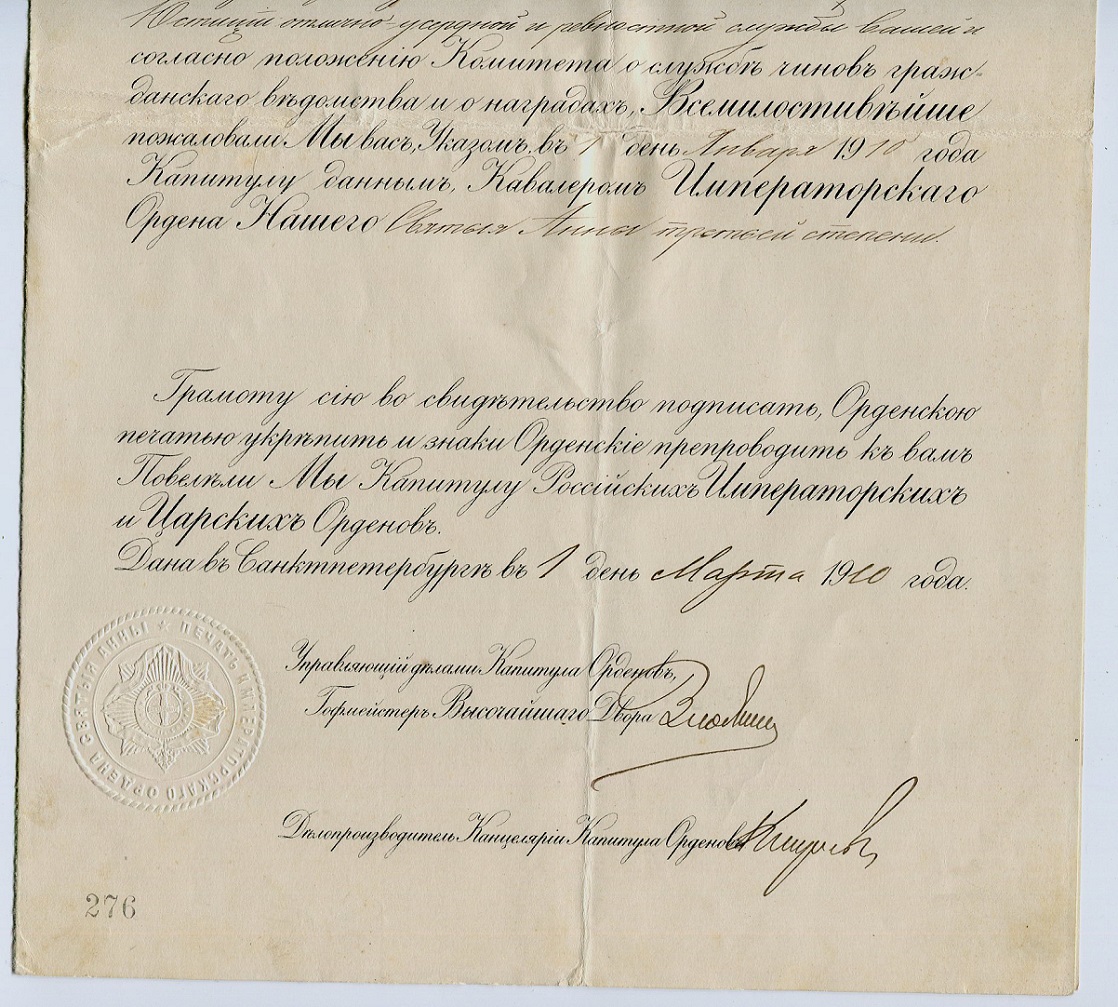 Юстиціи отлично-усердной и ревностной службы вашей и
согласно положенію Комитета о службѣ чиновъ граж-
данскаго вѣдомства и о наградахъ, Всемилостивѣйше
пожаловали Мы васъ, Указомъ въ 1 день Января 1910 года
Капитулу даннымъ, Кавалеромъ Императорскаго
Ордена Нашего Святыя Анны третьей степени.
Грамоту сію во свидѣтельство подписать, Орденскою
печатью укрѣпить и знаки Орденскіе препроводить къ вамъ
Повелѣли Мы Капитулу Россійскихъ Императорскихъ
и Царскихъ Орденовъ.
Дана въ Санктпетербургѣ въ 1 день Марта 1910 года.
ПЕЧАТЬ ИМПЕРАТОРСКАГО ОРДЕНА СВЯТЫЯ АННЫ
Управляющій дѣлами Капитула Орденовъ,
Гофмейстеръ Высочайшаго Двора
Дѣлопроизводитель Канцеляріи Капитула Орденовъ
276